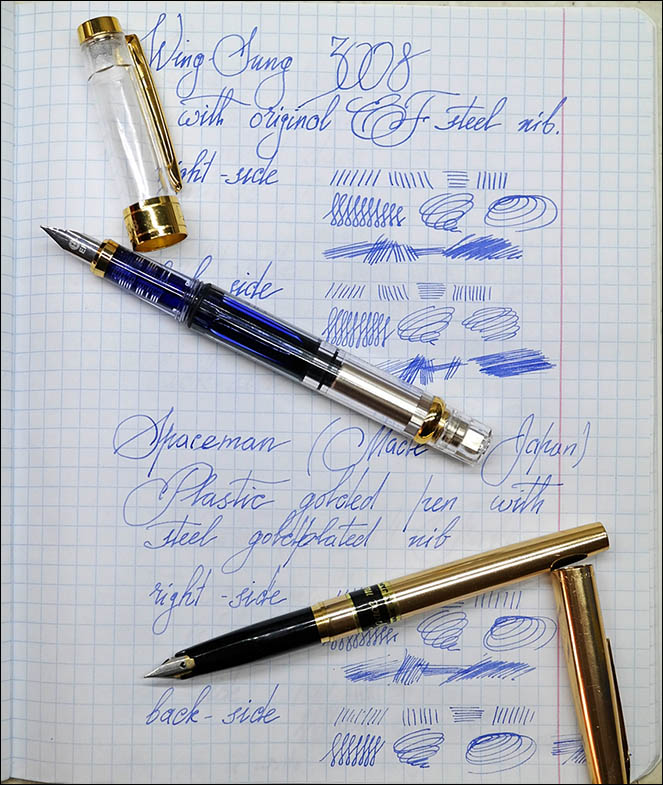 Wing Sung 3008
with original EF steel nib.
right-side
side
Spaceman (Made Japan)
Plastic golded pen with
steel goldplated nib
right-side
back-side